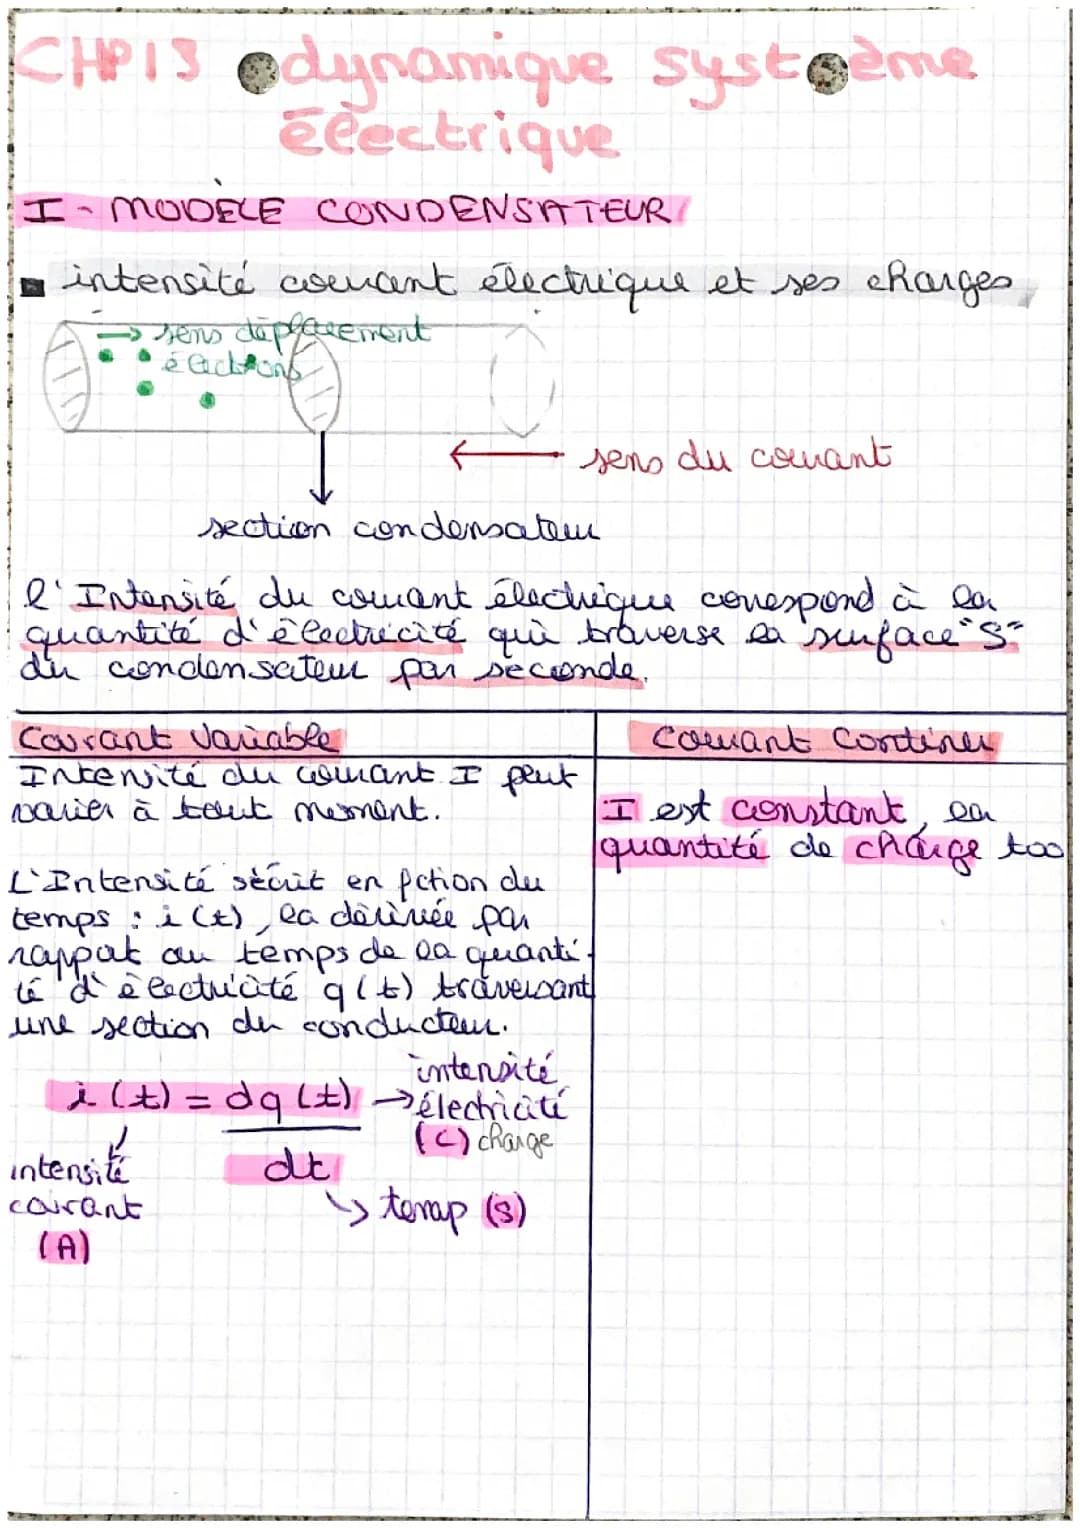 CHP13 dynamique système
électrique
I - MODÈLE CONDENSATEUR
intensité courant électrique et ses charges
→ sens déplacement
électrons
← sens du courant
section condensateur
l'Intensité du courant électrique correspond à la
quantité d'électricité qui traverse la surface "S"
du condensateur par seconde.
Courant Variable
Intensité du courant I peut
varier à tout moment.
L'Intensité s'écrit en fction du
temps : i(t), la dérivée par
rapport au temps de la quanti-
té d'électricité q(t) traversant
une section du conducteur.
i(t) = dq(t) → intensité
électricité
(C) charge
dt
intensité
courant
(A)
↳ temp (s)
Courant Continu
I est constant, la
quantité de charge too